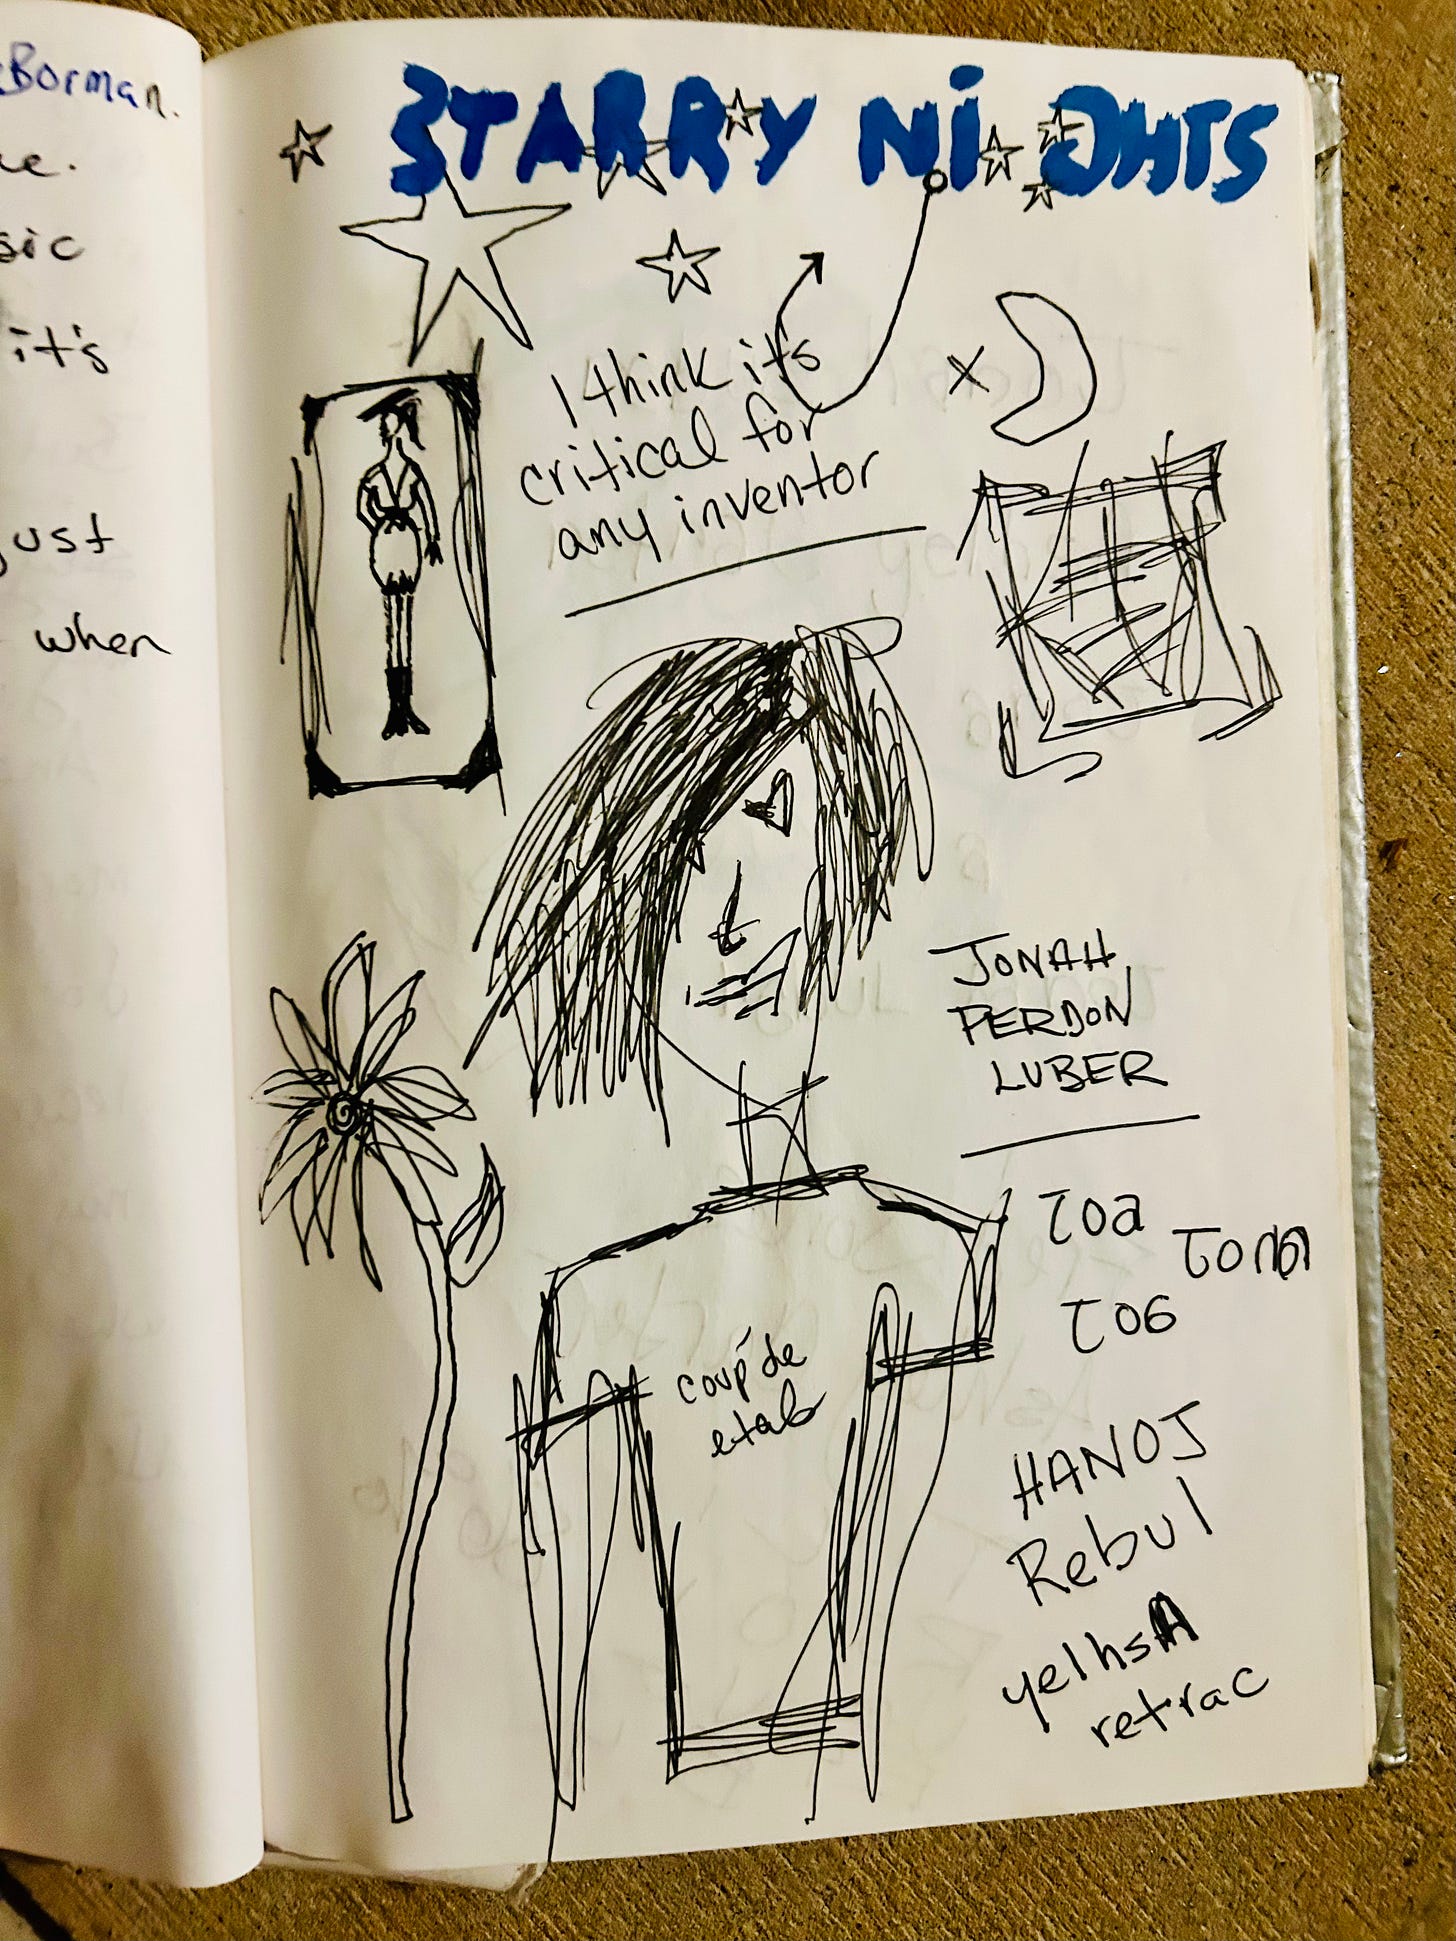 Borman.
sic
it's
just
when
STARRY NiGHTS
I think it's
critical for
any inventor
JONAH
PERDON
LUBER
coup de
etab
TOa
TOG
HANOJ
Rebul
yelhsA
retrac